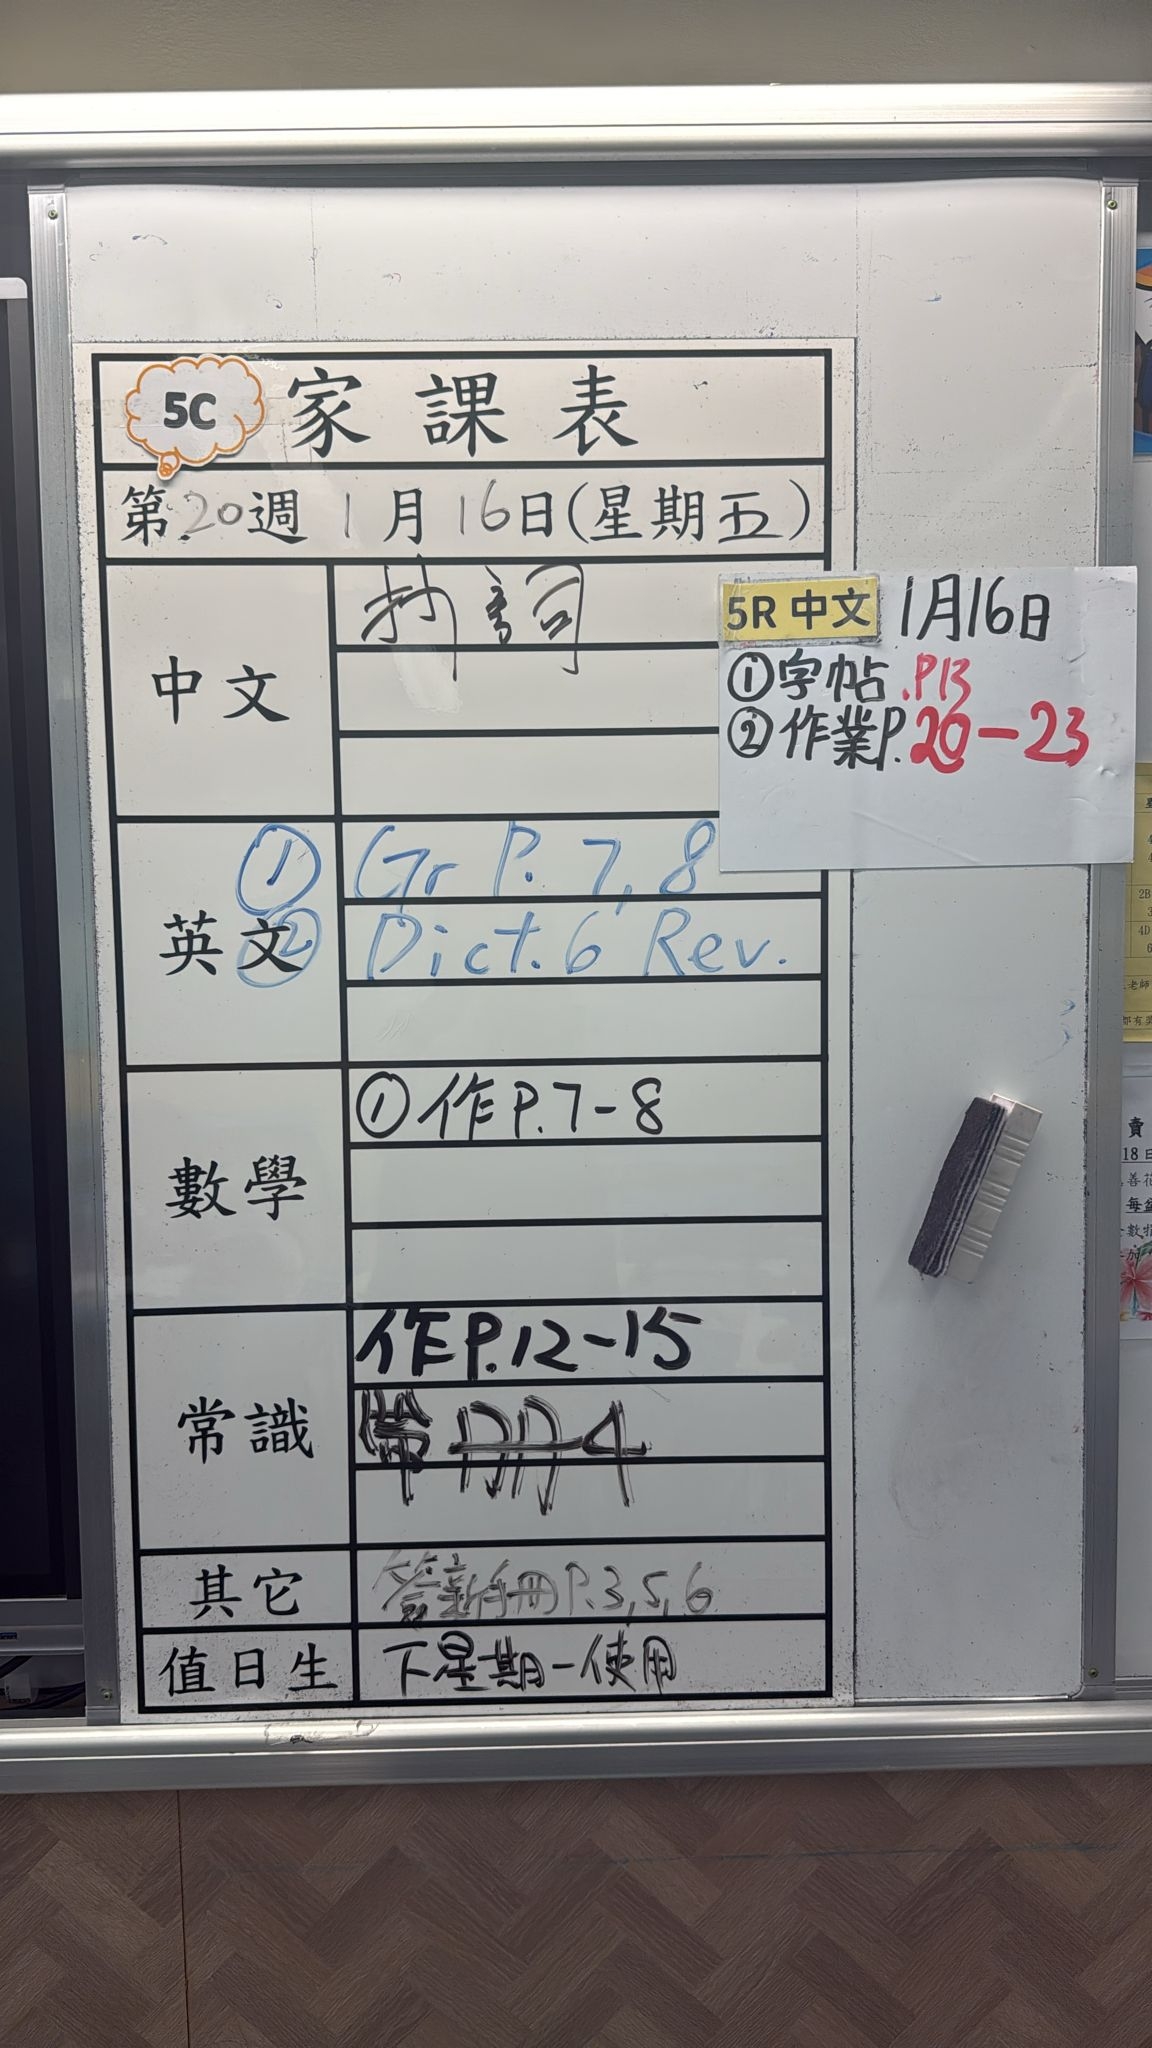 5C 家課表
第20週 1月16日(星期五)
中文
抄詞
5R 中文 1月16日
①字帖.P13
②作業P.20-23
英文
① Gr P. 7, 8
② Dict. 6 Rev.
數學
①作P.7-8
常識
作P.12-15
常
4
其它
簽新手冊P.3,5,6
值日生
下星期一使用
2B
4D
老師
都有
賣
18日
每盆